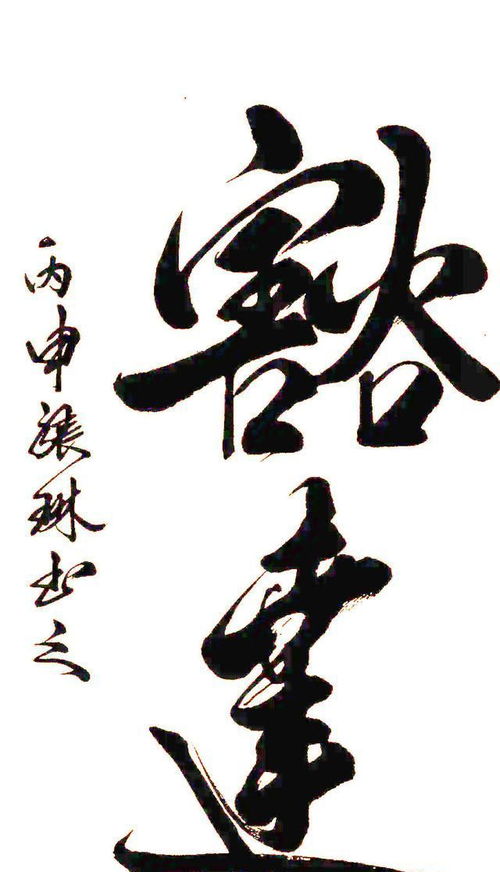 豁達
丙申張琳书之